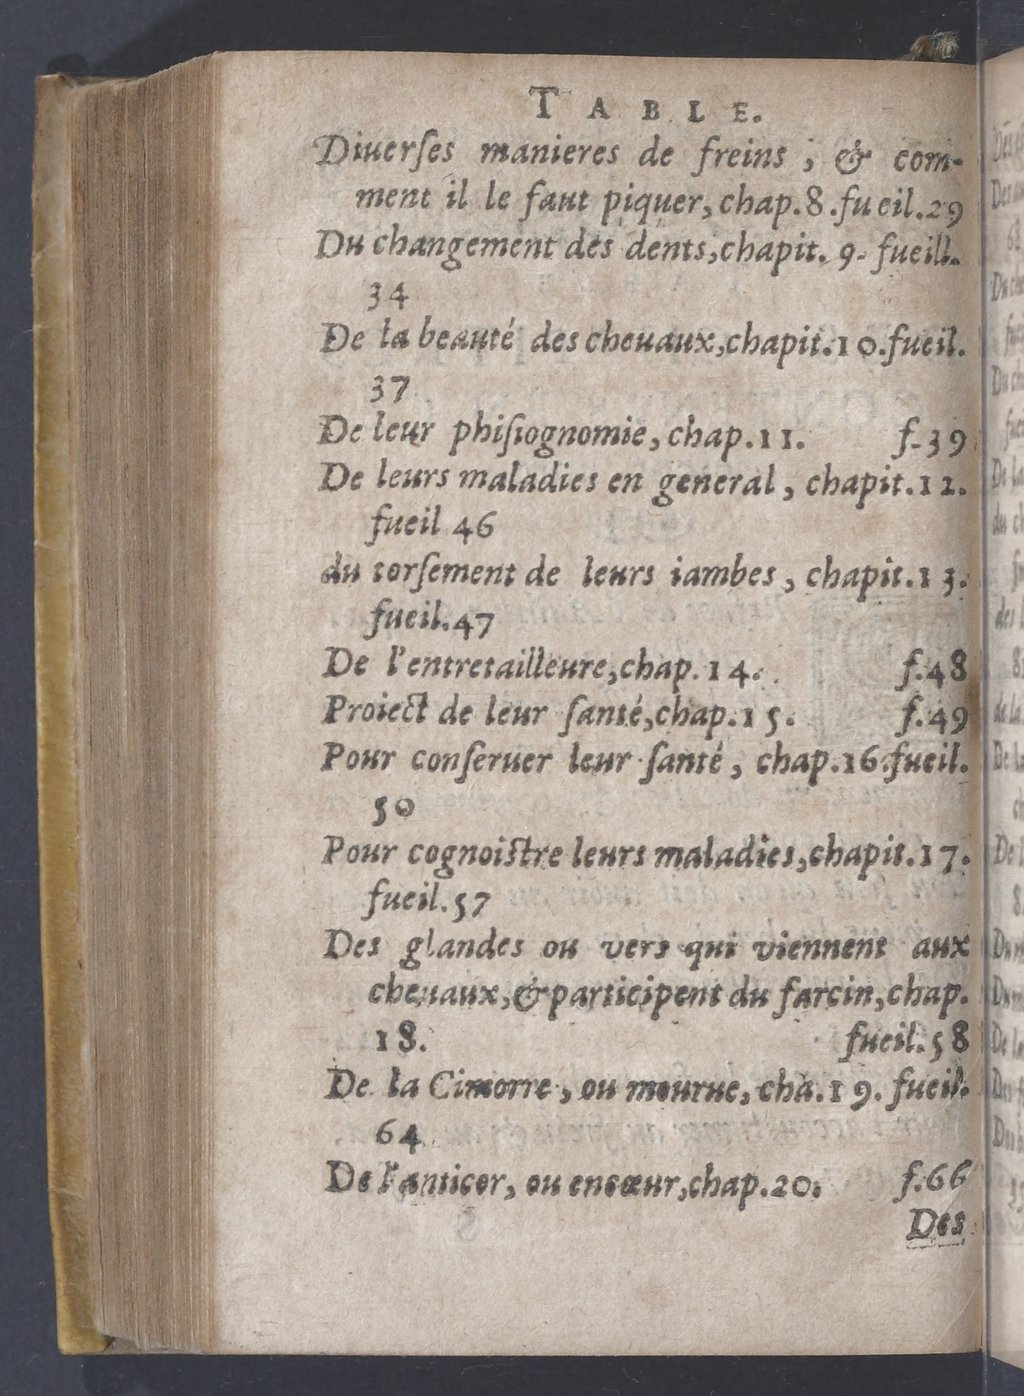 TABLE.
Diuerſes manieres de freins, & com-
ment il le faut piquer, chap.8.fueil.29
Du changement des dents,chapit. 9. fueill.
34
De la beauté des cheuaux,chapit.10.fueil.
37
De leur phiſiognomie, chap.11. f.39
De leurs maladies en general, chapit.12.
fueil 46
du torſement de leurs iambes, chapit.13.
fueil.47
De l'entretailleure,chap.14. f.48
Proiect de leur ſanté,chap.15. f.49
Pour conſeruer leur ſanté, chap.16.fueil.
50
Pour cognoiſtre leurs maladies,chapit.17.
fueil.57
Des glandes ou vers qui viennent aux
cheuaux,&participent du farcin,chap.
18. fueil.58
De la Cimorre, ou mourue, cha.19. fueil.
64
De l'anticor, ou encœur,chap.20. f.66
Des